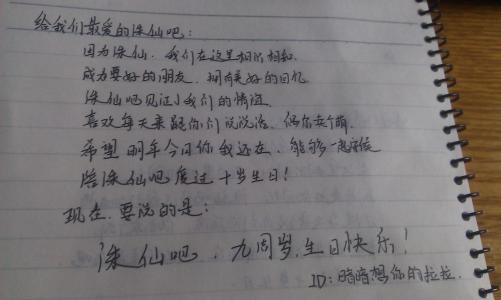 给我们最爱的诛仙吧：
因为诛仙，我们在这里相识相知.
成为要好的朋友，拥有美好的回忆
诛仙吧见证了我们的情谊.
喜欢每天来跟你们说说话，偶尔卖个萌.
希望明年今日你我还在，能够一起守候
陪诛仙吧度过十岁生日！
现在，要说的是：
诛仙吧，九周岁，生日快乐！
ID：暗暗想你的拉拉.